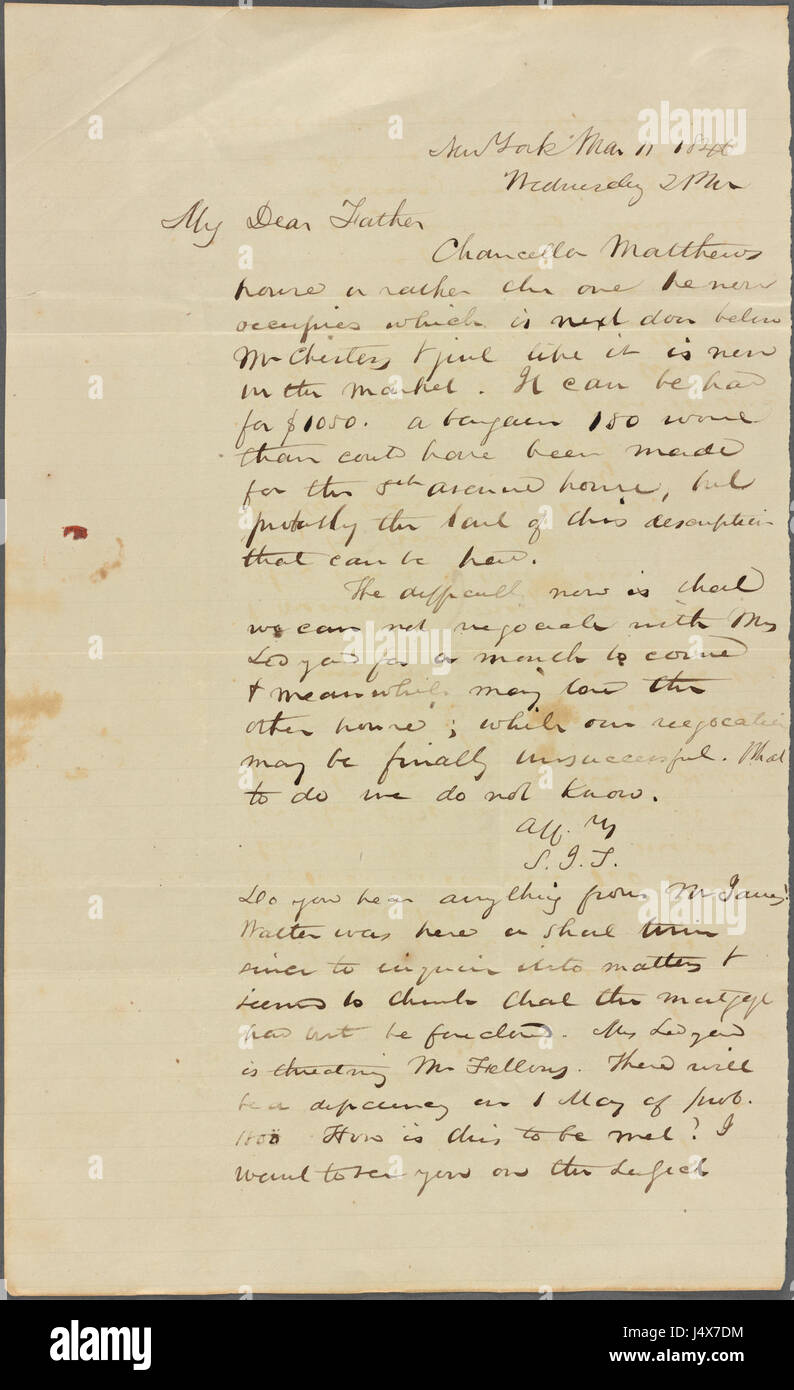 New York Mar 11 1846
Wednesday 2 PM
My Dear Father
Chancellor Matthews
house or rather the one he now
occupies which is next door below
Mr Chesters & just like it is now
in the market. It can be had
for $1050. a bargain 150 worse
than could have been made
for the 5th avenue house, but
probably the last of this description
that can be had.
The difficulty now is that
we can not negociate with Mrs
Ledyard for a month to come
& meanwhile may lose the
other house; while our negociation
may be finally unsuccessful. What
to do we do not know.
Aff. Yy
S. J. T.
Do you hear anything from Mr James?
Walter was here a short time
since to inquire into matters &
seems to think that the mortgage
had best be foreclosed. Mrs Ledyard
is Mr Fellows. There will
be a deficiency on 1 May of prob.
1800 How is this to be met? I
want to see you on the subject
a
alamy
J4X7DM
www.alamy.com